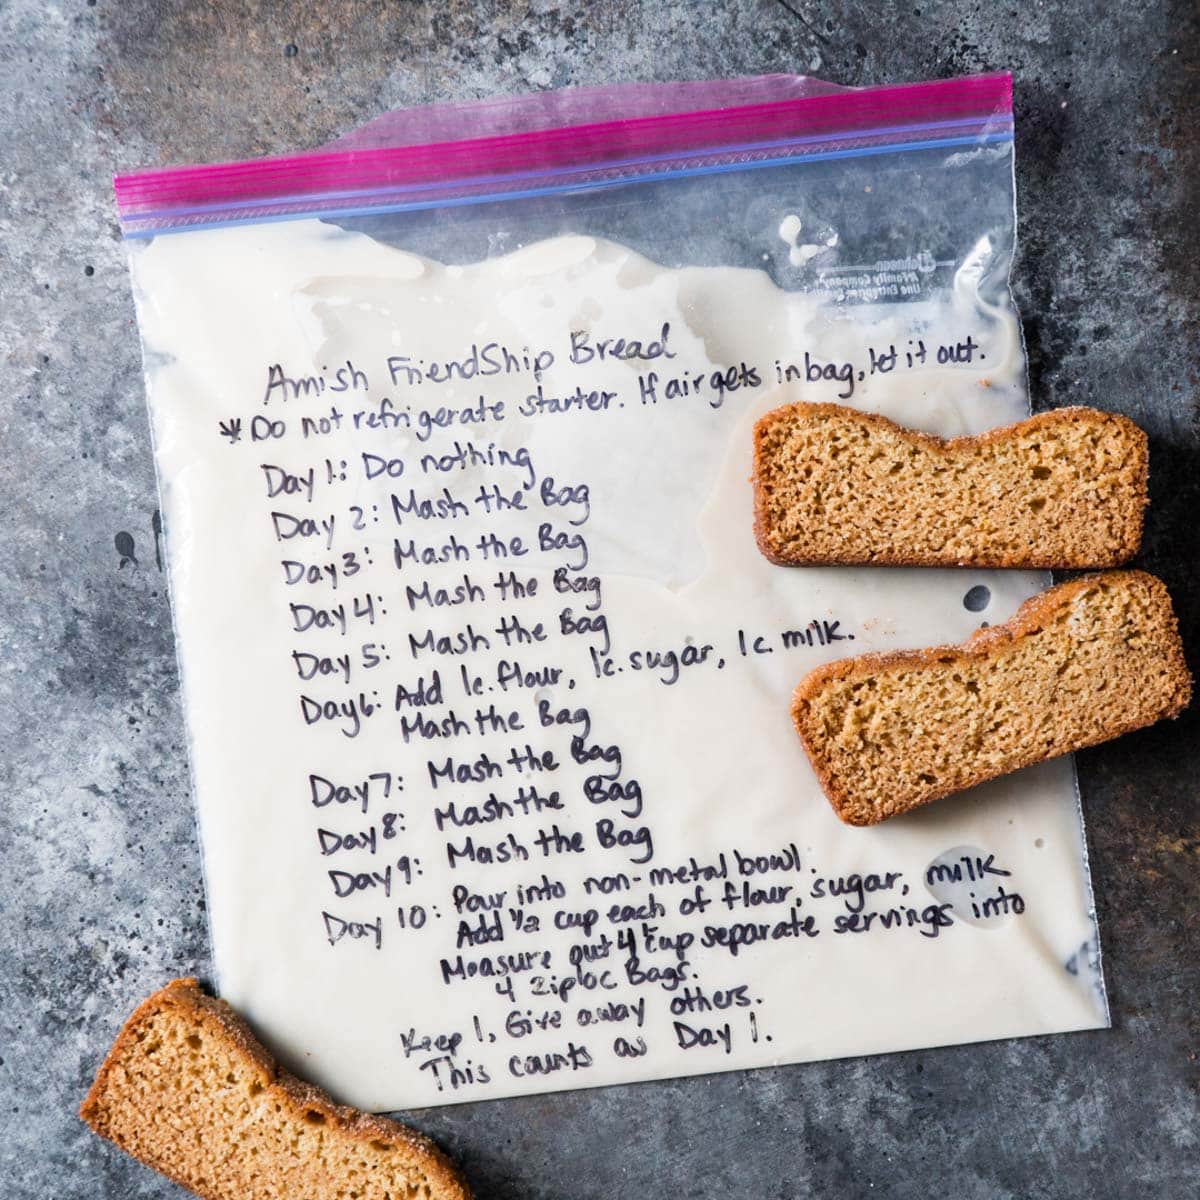 Johnson
A Family Company
Amish FriendShip Bread
* Do not refrigerate starter. If air gets in bag, let it out.
Day 1: Do nothing
Day 2: Mash the Bag
Day 3: Mash the Bag
Day 4: Mash the Bag
Day 5: Mash the Bag
Day 6: Add 1c. flour, 1c. sugar, 1c. milk.
Mash the Bag
Day 7: Mash the Bag
Day 8: Mash the Bag
Day 9: Mash the Bag
Day 10: Pour into non-metal bowl.
Add 1/2 cup each of flour, sugar, milk
Measure out 4 1 cup separate servings into
4 ziploc Bags.
Keep 1, Give away others.
This counts as Day 1.